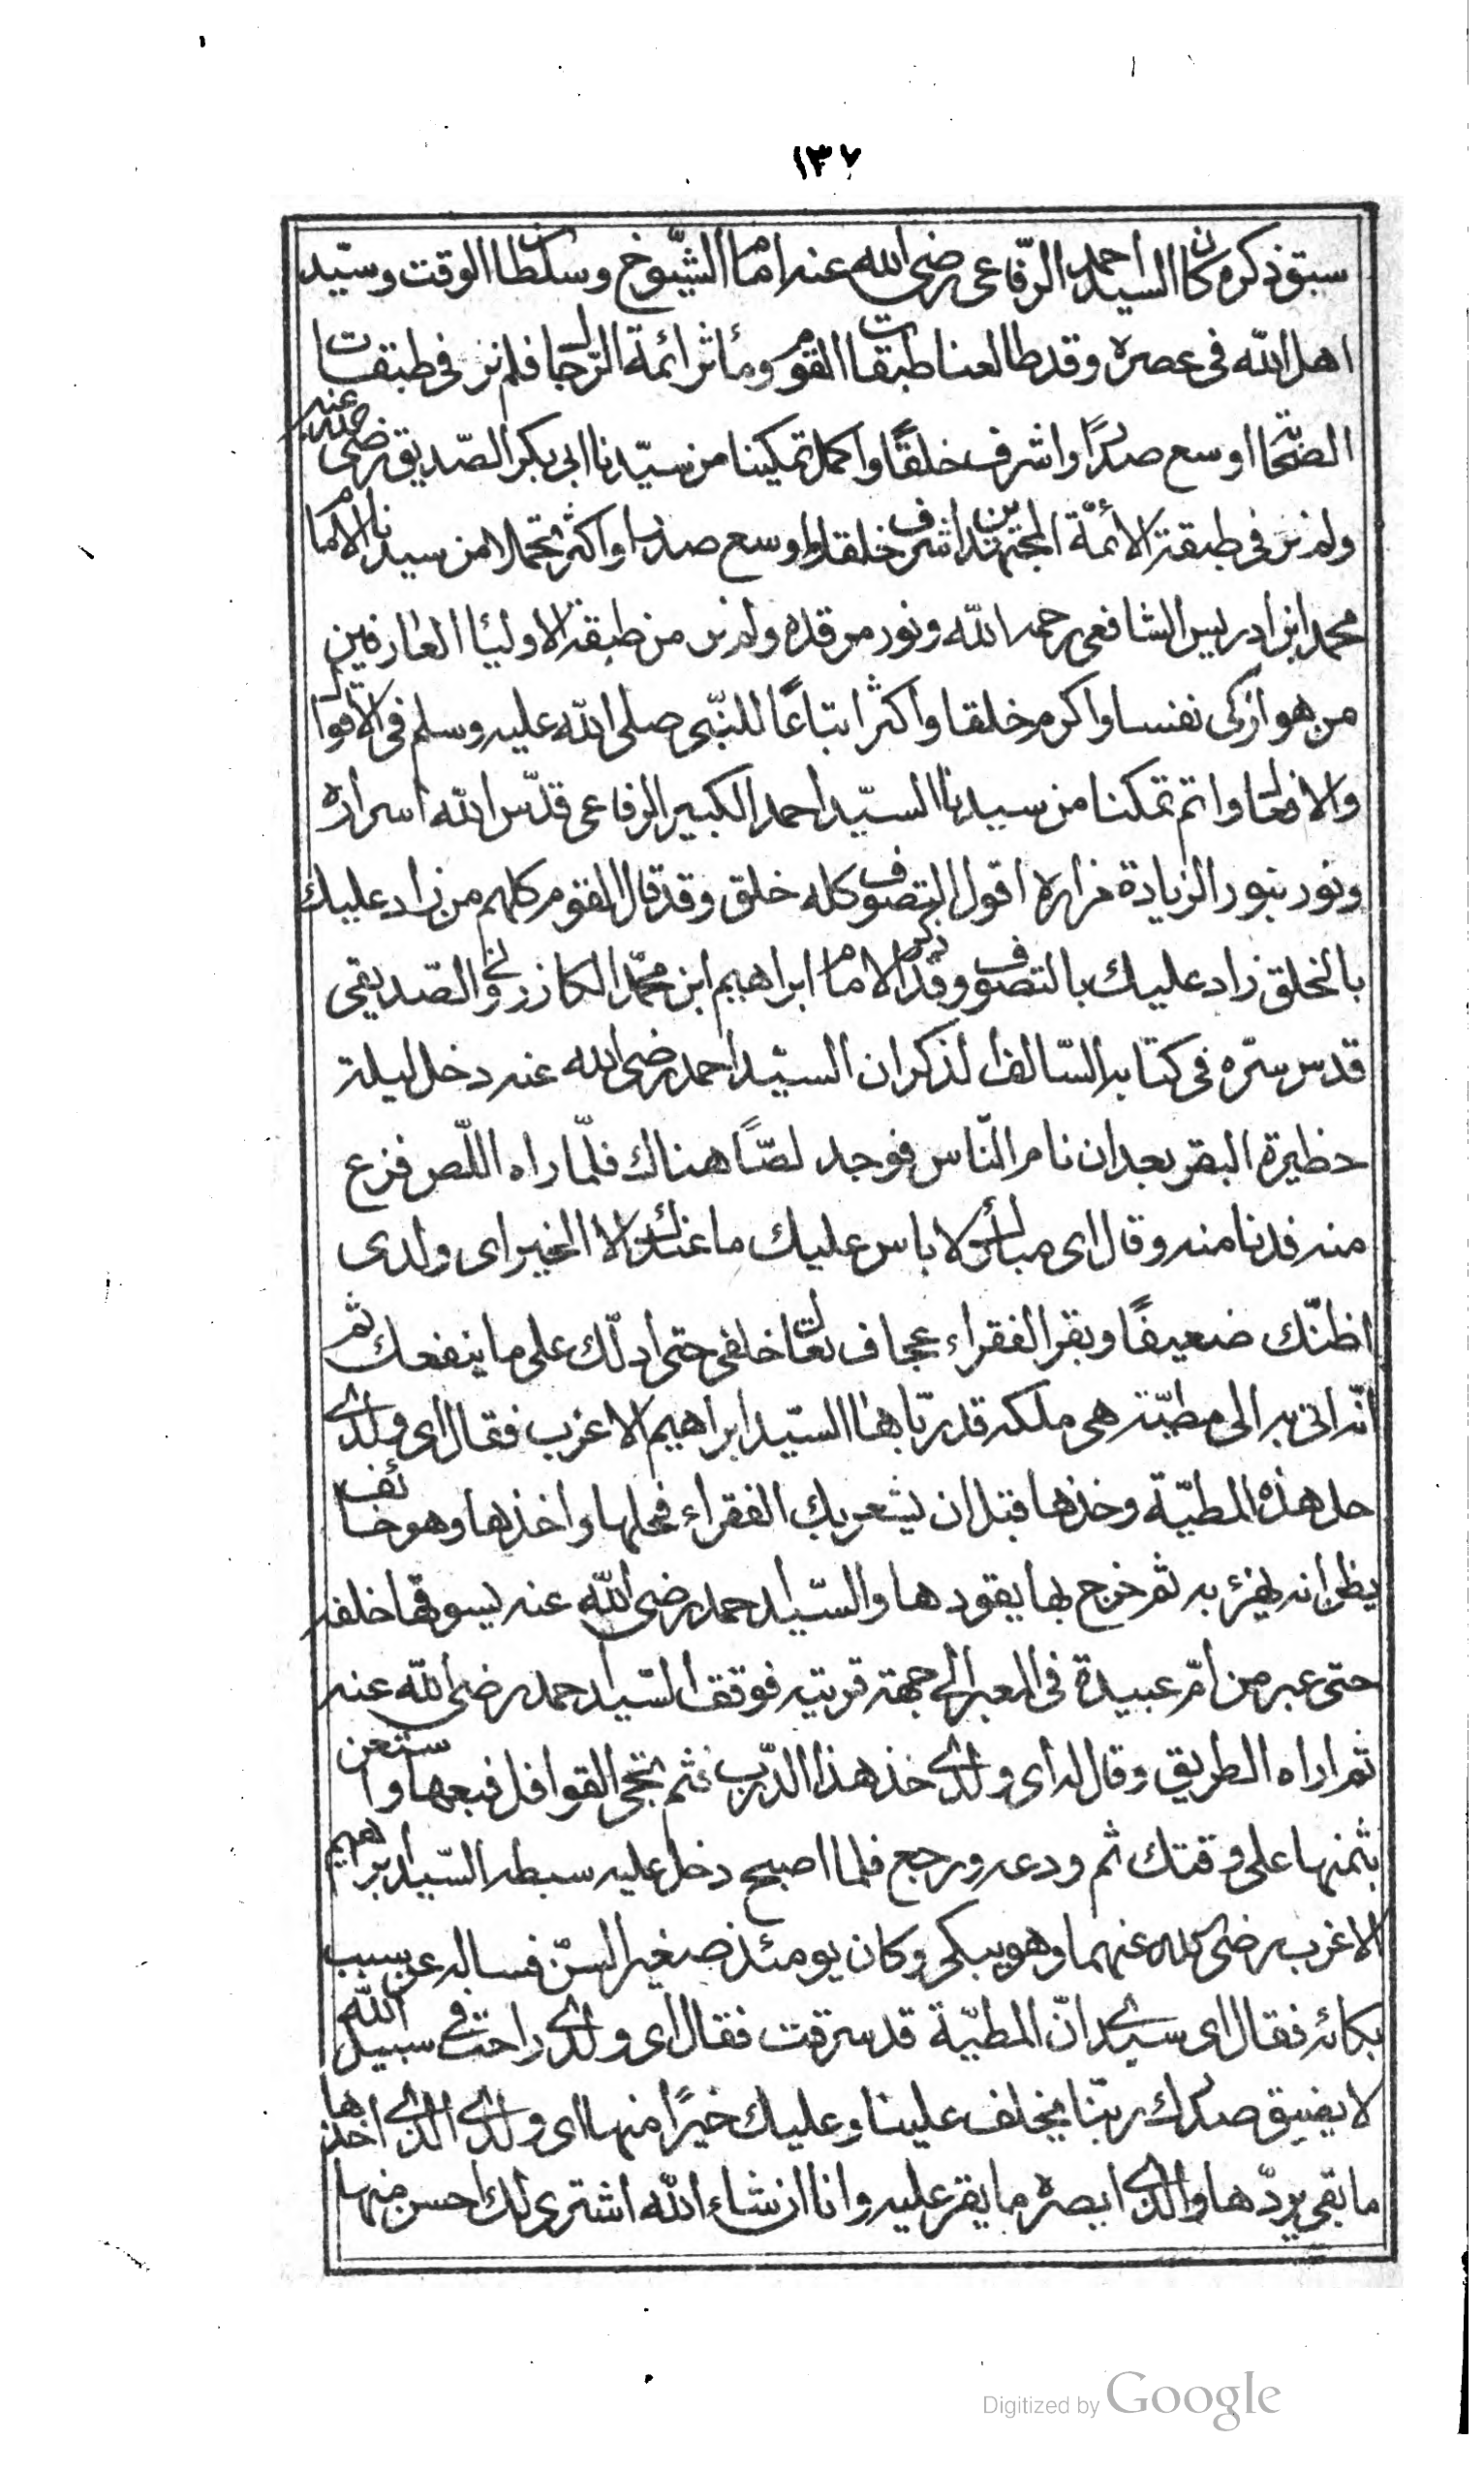 ١٣٧
سبق ذكره كان السيد احمد الرّفاعى رضى الله عنه امام الشّيوخ وسلطان الوقت وسيّد
اهل الله فى عصره وقد طالعنا طبقات القوم ومأثر ائمة الرّجال فلم نر فى طبقات
الصّحابة اوسع صدرًا واشرف خلقًا واكمل تمكينا من سيّدنا ابى بكر الصّديق رضى الله عنه
ولم نر فى طبقة الأئمّة المجتهدين اشرف خلقا واوسع صدرا واكثر تحملا من سيدنا الامام
محمد ابن ادريس الشافعى رحمه الله ونور مرقده ولم نر من طبقة الاولئا العارفين
من هو ازكى نفسا واكرم خلقا واكثر اتباعًا للنّبى صلى الله عليه وسلم فى الأقوال
والافعال واتم تمكنا من سيدنا السيّد احمد الكبير الرفاعى قدّس الله اسراره
ونور بنور الزيادة مزاره اقول التصوف كله خلق وقد قال القوم كلهم من زاد عليك
بالخلق زاد عليك بالتصوف وقد ذكر الامام ابراهيم ابن محمّد الكازرونى الصّديقى
قدس سرّه فى كتابه السّالف الذكر ان السيّد احمد رضى الله عنه دخل ليلة
حظيرة البقر بعد ان نام النّاس فوجد لصًّا هناك فلمّا راه اللّص فزع
منه فدنا منه وقال اى مبارك لا باس عليك ما عندك الا الخير اى ولدى
اظنّك ضعيفًا وبقر الفقراء عجاف تعال خلفى حتى ادلّك على ما ينفعك ثم
انّه اتى به الى مطيّة هى ملكه قد ربّاها السيّد ابراهيم الاعزب فقال اى ولدى
حل هذه المطيّة وخذها قبل ان يشعر بك الفقراء فحلها واخذها وهو خائف
يظن انه يهزئ به ثم خرج بها يقودها والسّيد احمد رضى الله عنه يسوقها خلفه
حتى عبر من امّ عبيدة فى المعبر الى جهة قريته فوقف السّيد احمد رضى الله عنه
ثم اراه الطريق وقال له اى ولدى خذ هذا الدّرب فثم تجى القوافل فبعها واستعن
بثمنها على وقتك ثم ودعه ورجع فلما اصبح دخل عليه سبطه السّيد ابراهيم
الاعزب رضى الله عنهما وهو يبكى وكان يومئذ صغير السّن فساله عن سبب
بكائه فقال اى سيدى انّ المطيّة قد سرقت فقال اى ولدى راحت فى سبيل الله
لا يضيق صدرك ربّنا يخلف علينا وعليك خيرًا منها اى ولدى الذى اخذها
ما بقى يردّها والذى ابصره ما يقر عليه وانا ان شاء الله اشترى لك احسن منها
Digitized by Google